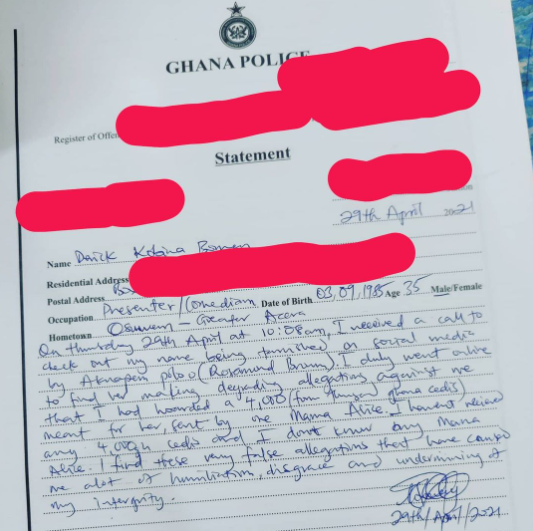 GHANA POLICE
Register of Offe
Statement
29th April 2021
Name Derick Kobina Bonney
Residential Address
Postal Address Bo
Occupation Presenter/Comedian Date of Birth 03,09,1985 Age 35 Male/Female
Hometown Osuwem - Greater Accra
On thursday 29th April at 10:08am, I received a call to
check out my name being tarnished on social media
by Akuapem poloo (Rosemond Brown). I duly went online
to find her making degrading allegations against me
that I had hoarded a 4,000 (four thousand ghana cedis)
meant for her, sent by one Mama Alice. I havent recieved
any 4,000gh cedis and I dont know any Mama
Alice. I find these very false allegations that have caused
me alot of humiliation, disgrace and undermining of
my intergrity.
29th/April/2021